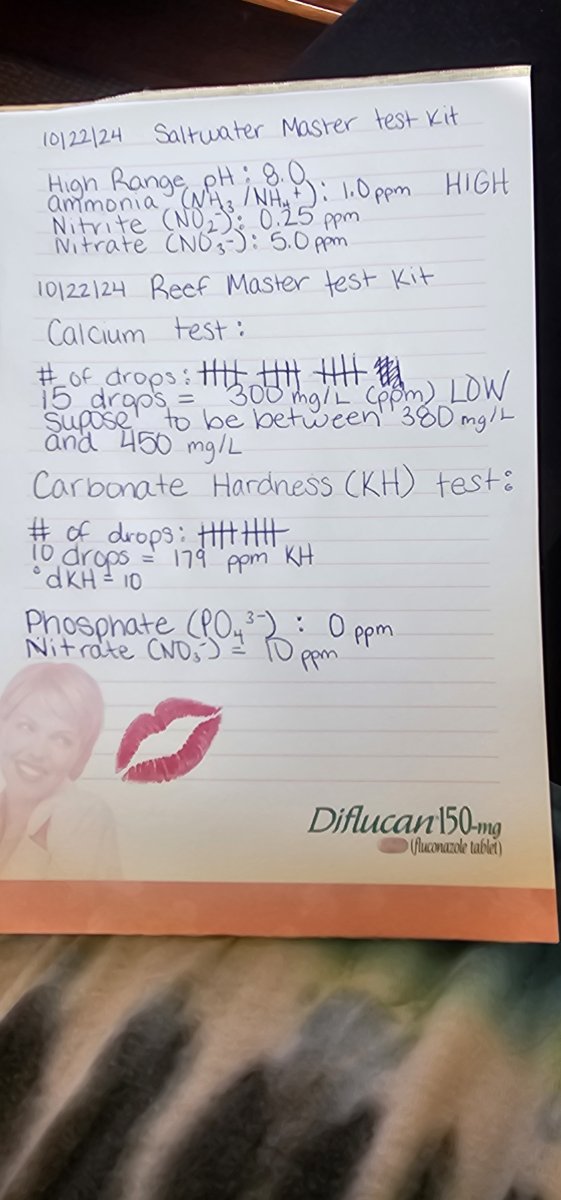 10/22/24 Saltwater Master test Kit
High Range pH: 8.0
ammonia (NH₃/NH₄⁺): 1.0 ppm HIGH
Nitrite (NO₂⁻): 0.25 ppm
Nitrate (NO₃⁻): 5.0 ppm
10/22/24 Reef Master test Kit
Calcium test:
# of drops:
15 drops = 300 mg/L (ppm) LOW
supose to be between 380 mg/L
and 450 mg/L
Carbonate Hardness (KH) test:
# of drops:
10 drops = 179 ppm KH
°dKH = 10
Phosphate (PO₄³⁻) : 0 ppm
Nitrate (NO₃⁻) = 10 ppm
Diflucan 150-mg
(fluconazole tablet)